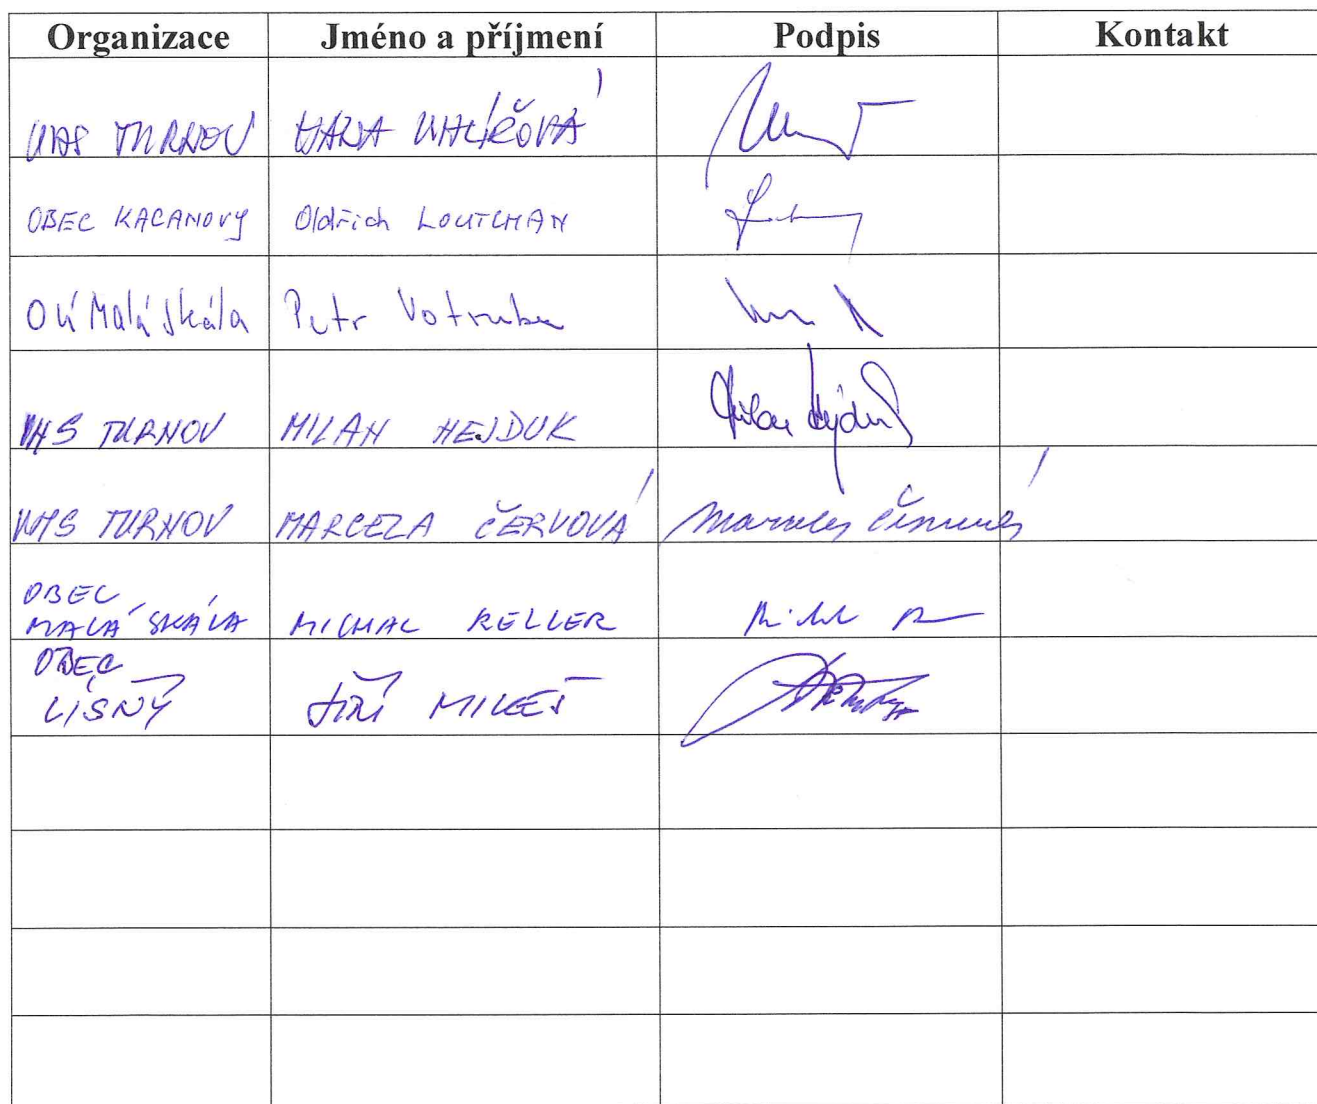 Organizace Jméno a příjmení Podpis Kontakt
VHS TURNOV HANA
OBEC KACANOVY Oldřich LOUTCHAN
OÚ Malá Skála Petr Votruba
VHS TURNOV MILAN HEJDUK Milan Hejduk
VHS TURNOV MARCELA ČERVOVÁ Marcela Červová
OBEC
MALÁ SKÁLA MICHAL RELLER
OBEC
LÍŠNÝ JIŘÍ MIKEŠ